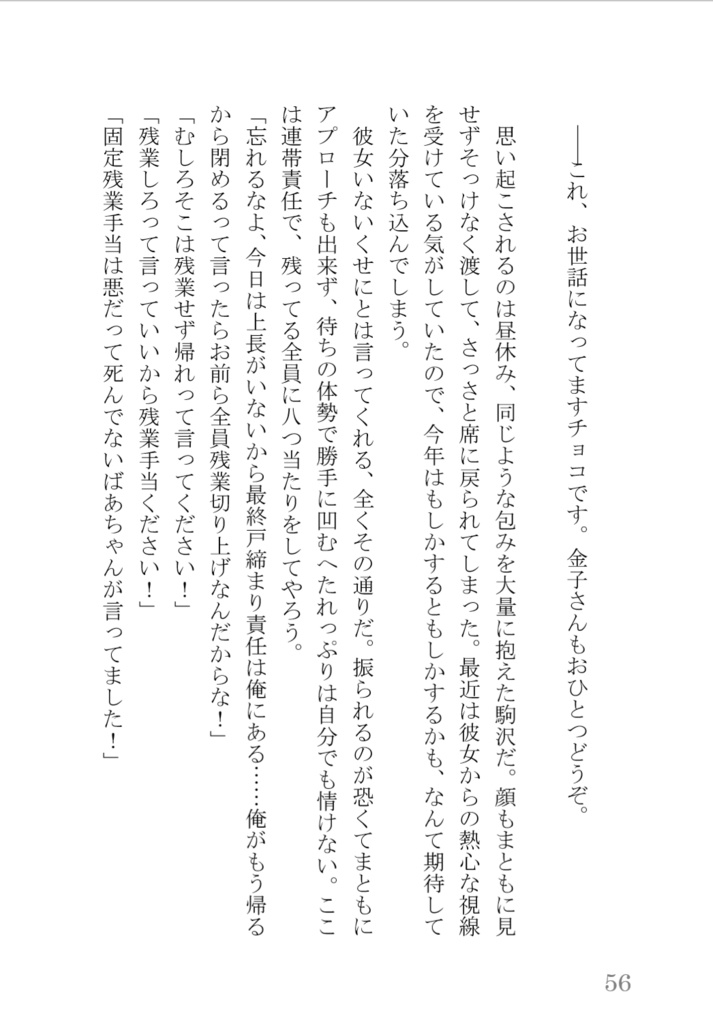 ――これ、お世話になってますチョコです。金子さんもおひとつどうぞ。
思い起こされるのは昼休み、同じような包みを大量に抱えた駒沢だ。顔もまともに見
せずそっけなく渡して、さっさと席に戻られてしまった。最近は彼女からの熱心な視線
を受けている気がしていたので、今年はもしかするともしかするかも、なんて期待して
いた分落ち込んでしまう。
彼女いないくせにとは言ってくれる、全くその通りだ。振られるのが恐くてまともに
アプローチも出来ず、待ちの体勢で勝手に凹むへたれっぷりは自分でも情けない。ここ
は連帯責任で、残ってる全員に八つ当たりをしてやろう。
「忘れるなよ、今日は上長がいないから最終戸締まり責任は俺にある……俺がもう帰る
から閉めるって言ったらお前ら全員残業切り上げなんだからな！」
「むしろそこは残業せず帰れって言ってください！」
「残業しろって言っていいから残業手当ください！」
「固定残業手当は悪だって死んでないばあちゃんが言ってました！」
56